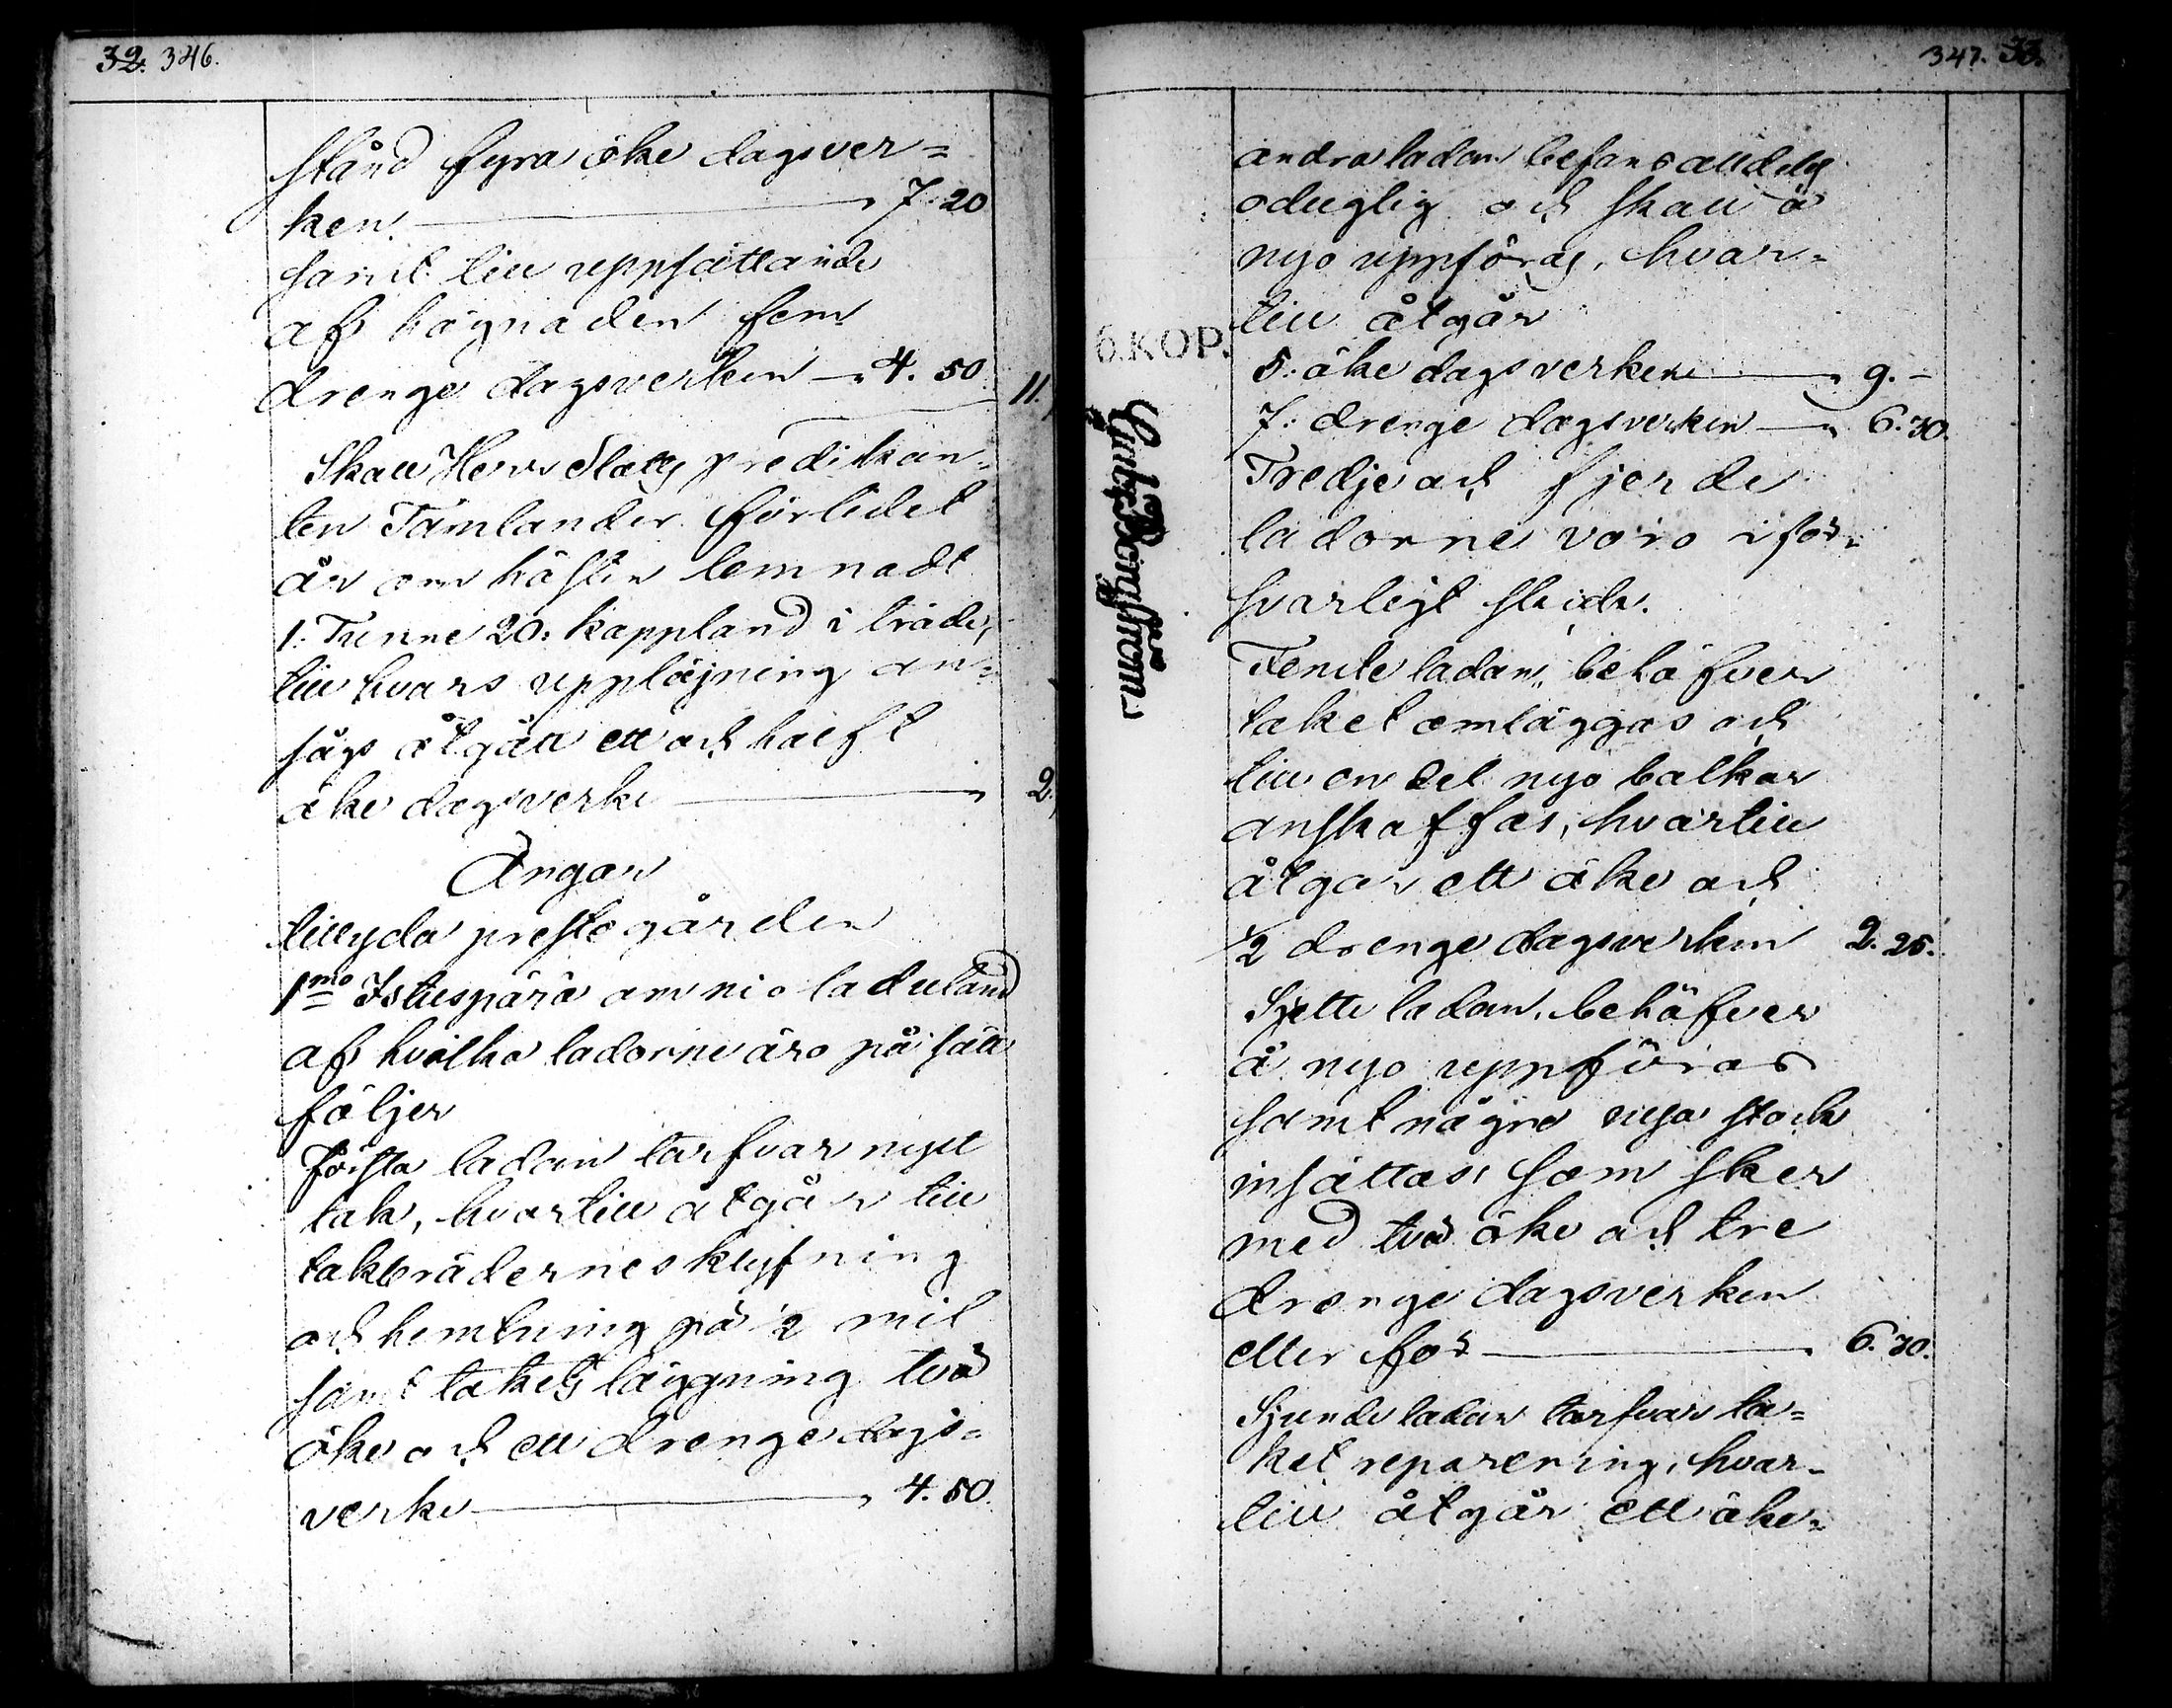 32. 346.
stånd fyra öke dagsver=
ken. 7.20
samt till uppsättande
af hägnaden fem
drenge dagsverken 4. 50 11.
Skall Herr Slotts predikan=
ten Tämlander förlidet
år om hösten lemnadt
1: Tunne 20: kappland i träde,
till hvars upplöjning an=
sågs åtgått ett och halft
öke dagsverke 2.
Ängar
till yda prestegården
1mo Istuspärä om nio laduland
af hvilka ladorne äro på sätt
följer
Första ladan tarfvar nytt
tak, hvartill åtgår till
takbrädernes klyfning
och hemtning på 1/2 mil
samt takets läggning två
öke och ett drenge dags=
verke 4. 50.
347. 33.
andra ladan befans alldeles
oduglig och skall å
nyo uppföras, hvar=
till åtgår
6.KOP.
5: öke dagsverken 9. –
7: drenge dagsverken 6. 30.
Tredje och fjerde
ladorne voro i för=
svarligt skick.
Femte ladan, behöfver
taket omläggas och
till en del nya balkar
anskaffas, hvartill
åtgår ett öke och
1/2 drenge dagsverken 2. 25.
Sjette ladan, behöfver
å nyo uppföras
samt några nya stock
insättas som sker
med två öke och tre
drenge dagsverken
eller för 6. 30.
Sjunde ladan tarfvar ta=
ket reparering, hvar=
till åtgår ett öke=